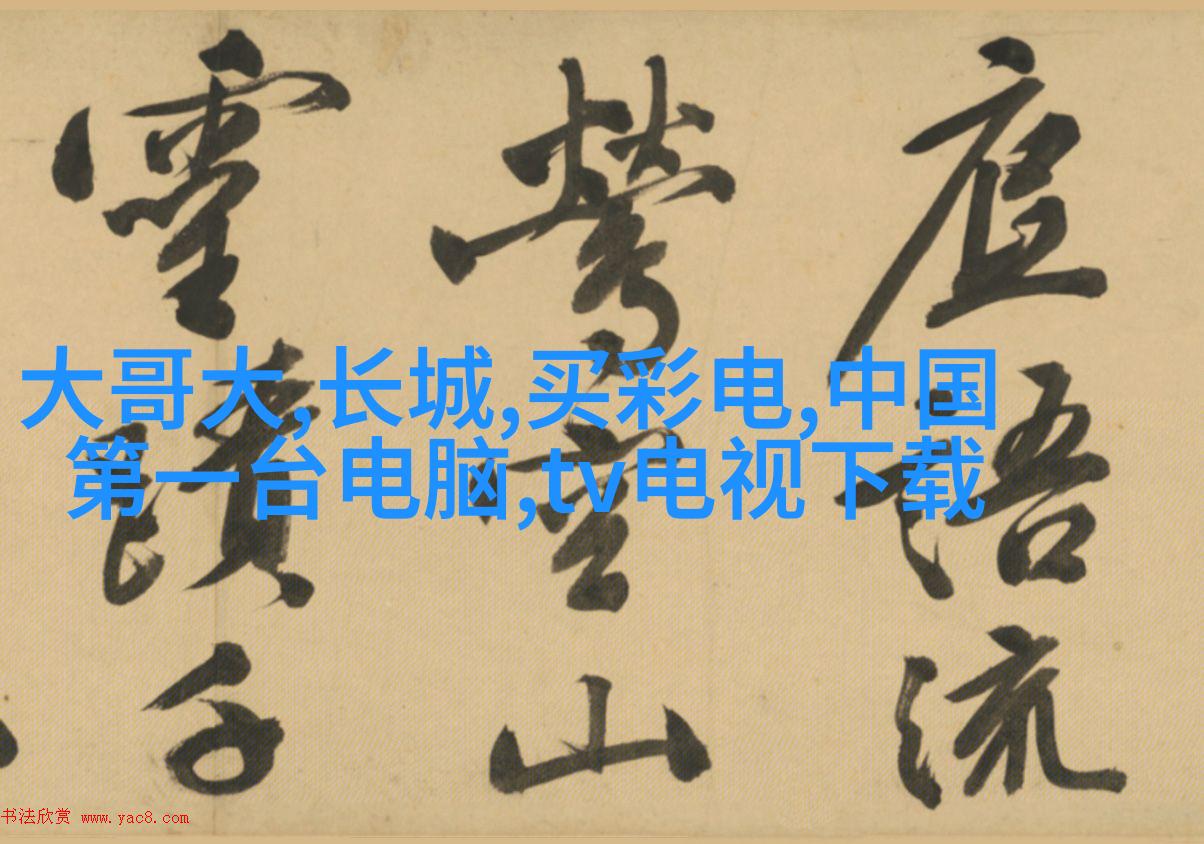 大哥大,长城,买彩电,中国
第一台电脑,tv电视下载
語流
山
靈蹟千
书法欣赏 www.yac8.com